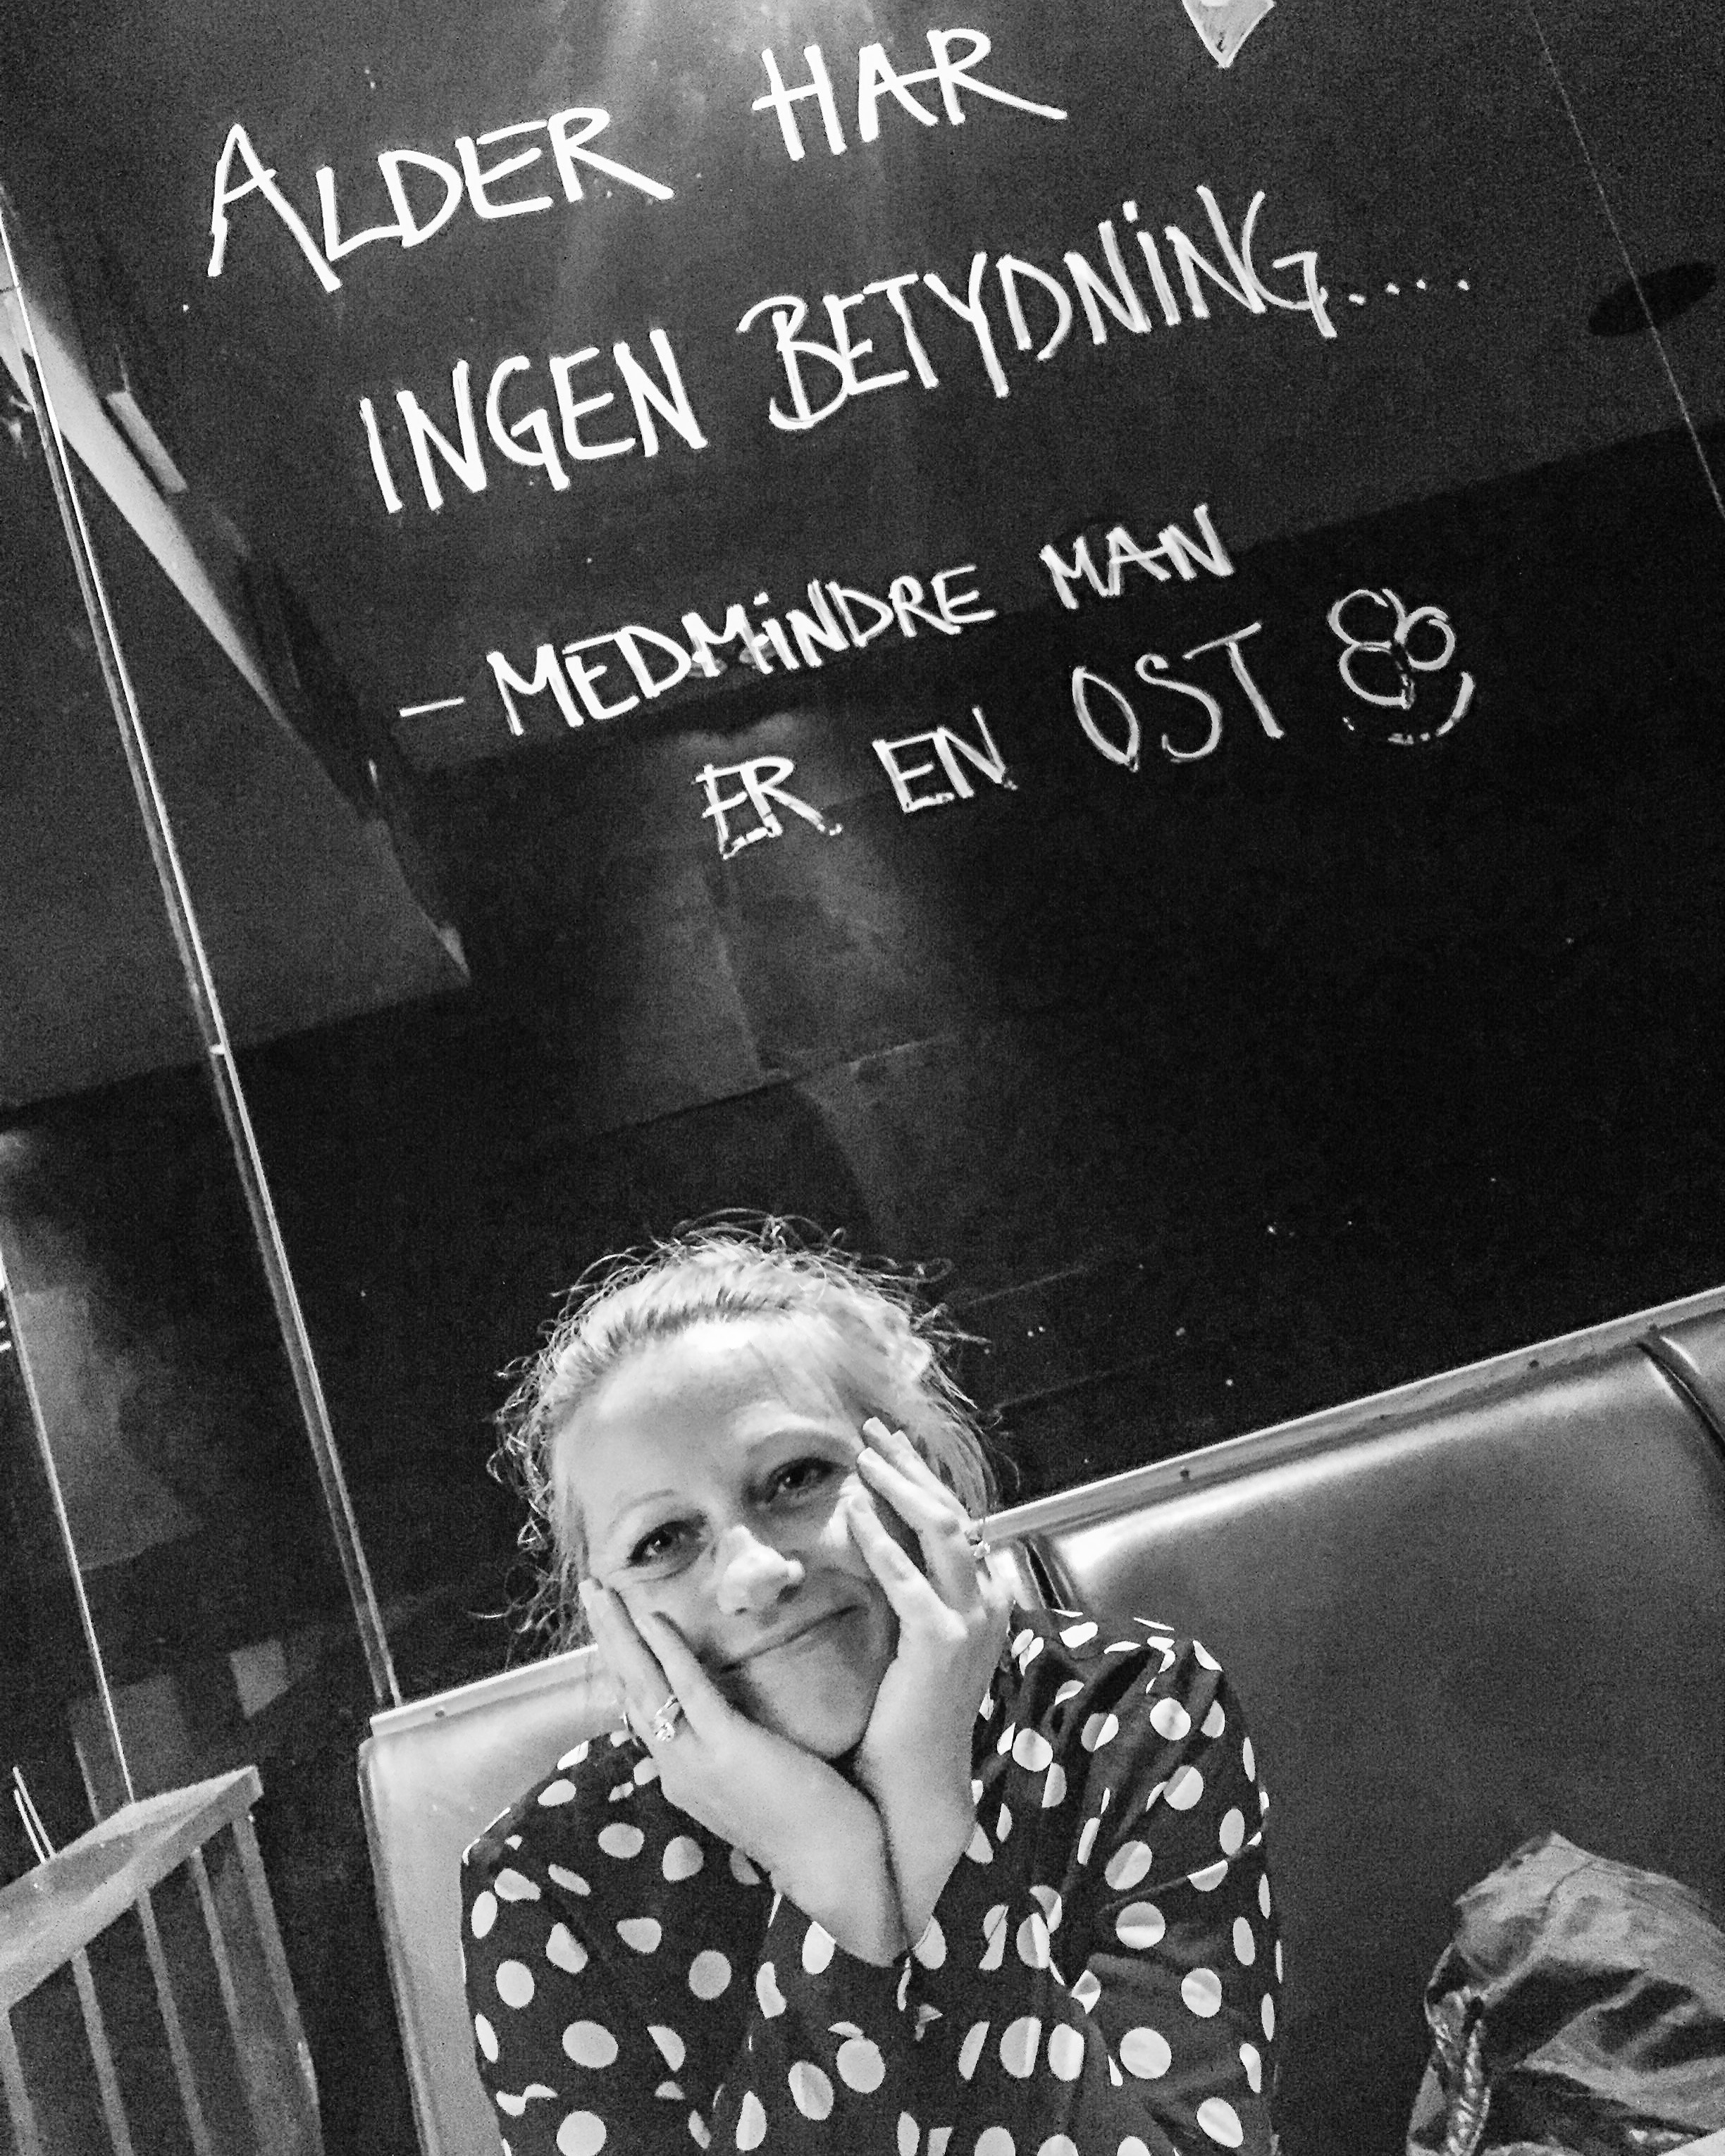 ALDER HAR
INGEN BETYDNING....
- MEDMINDRE MAN
ER EN OST